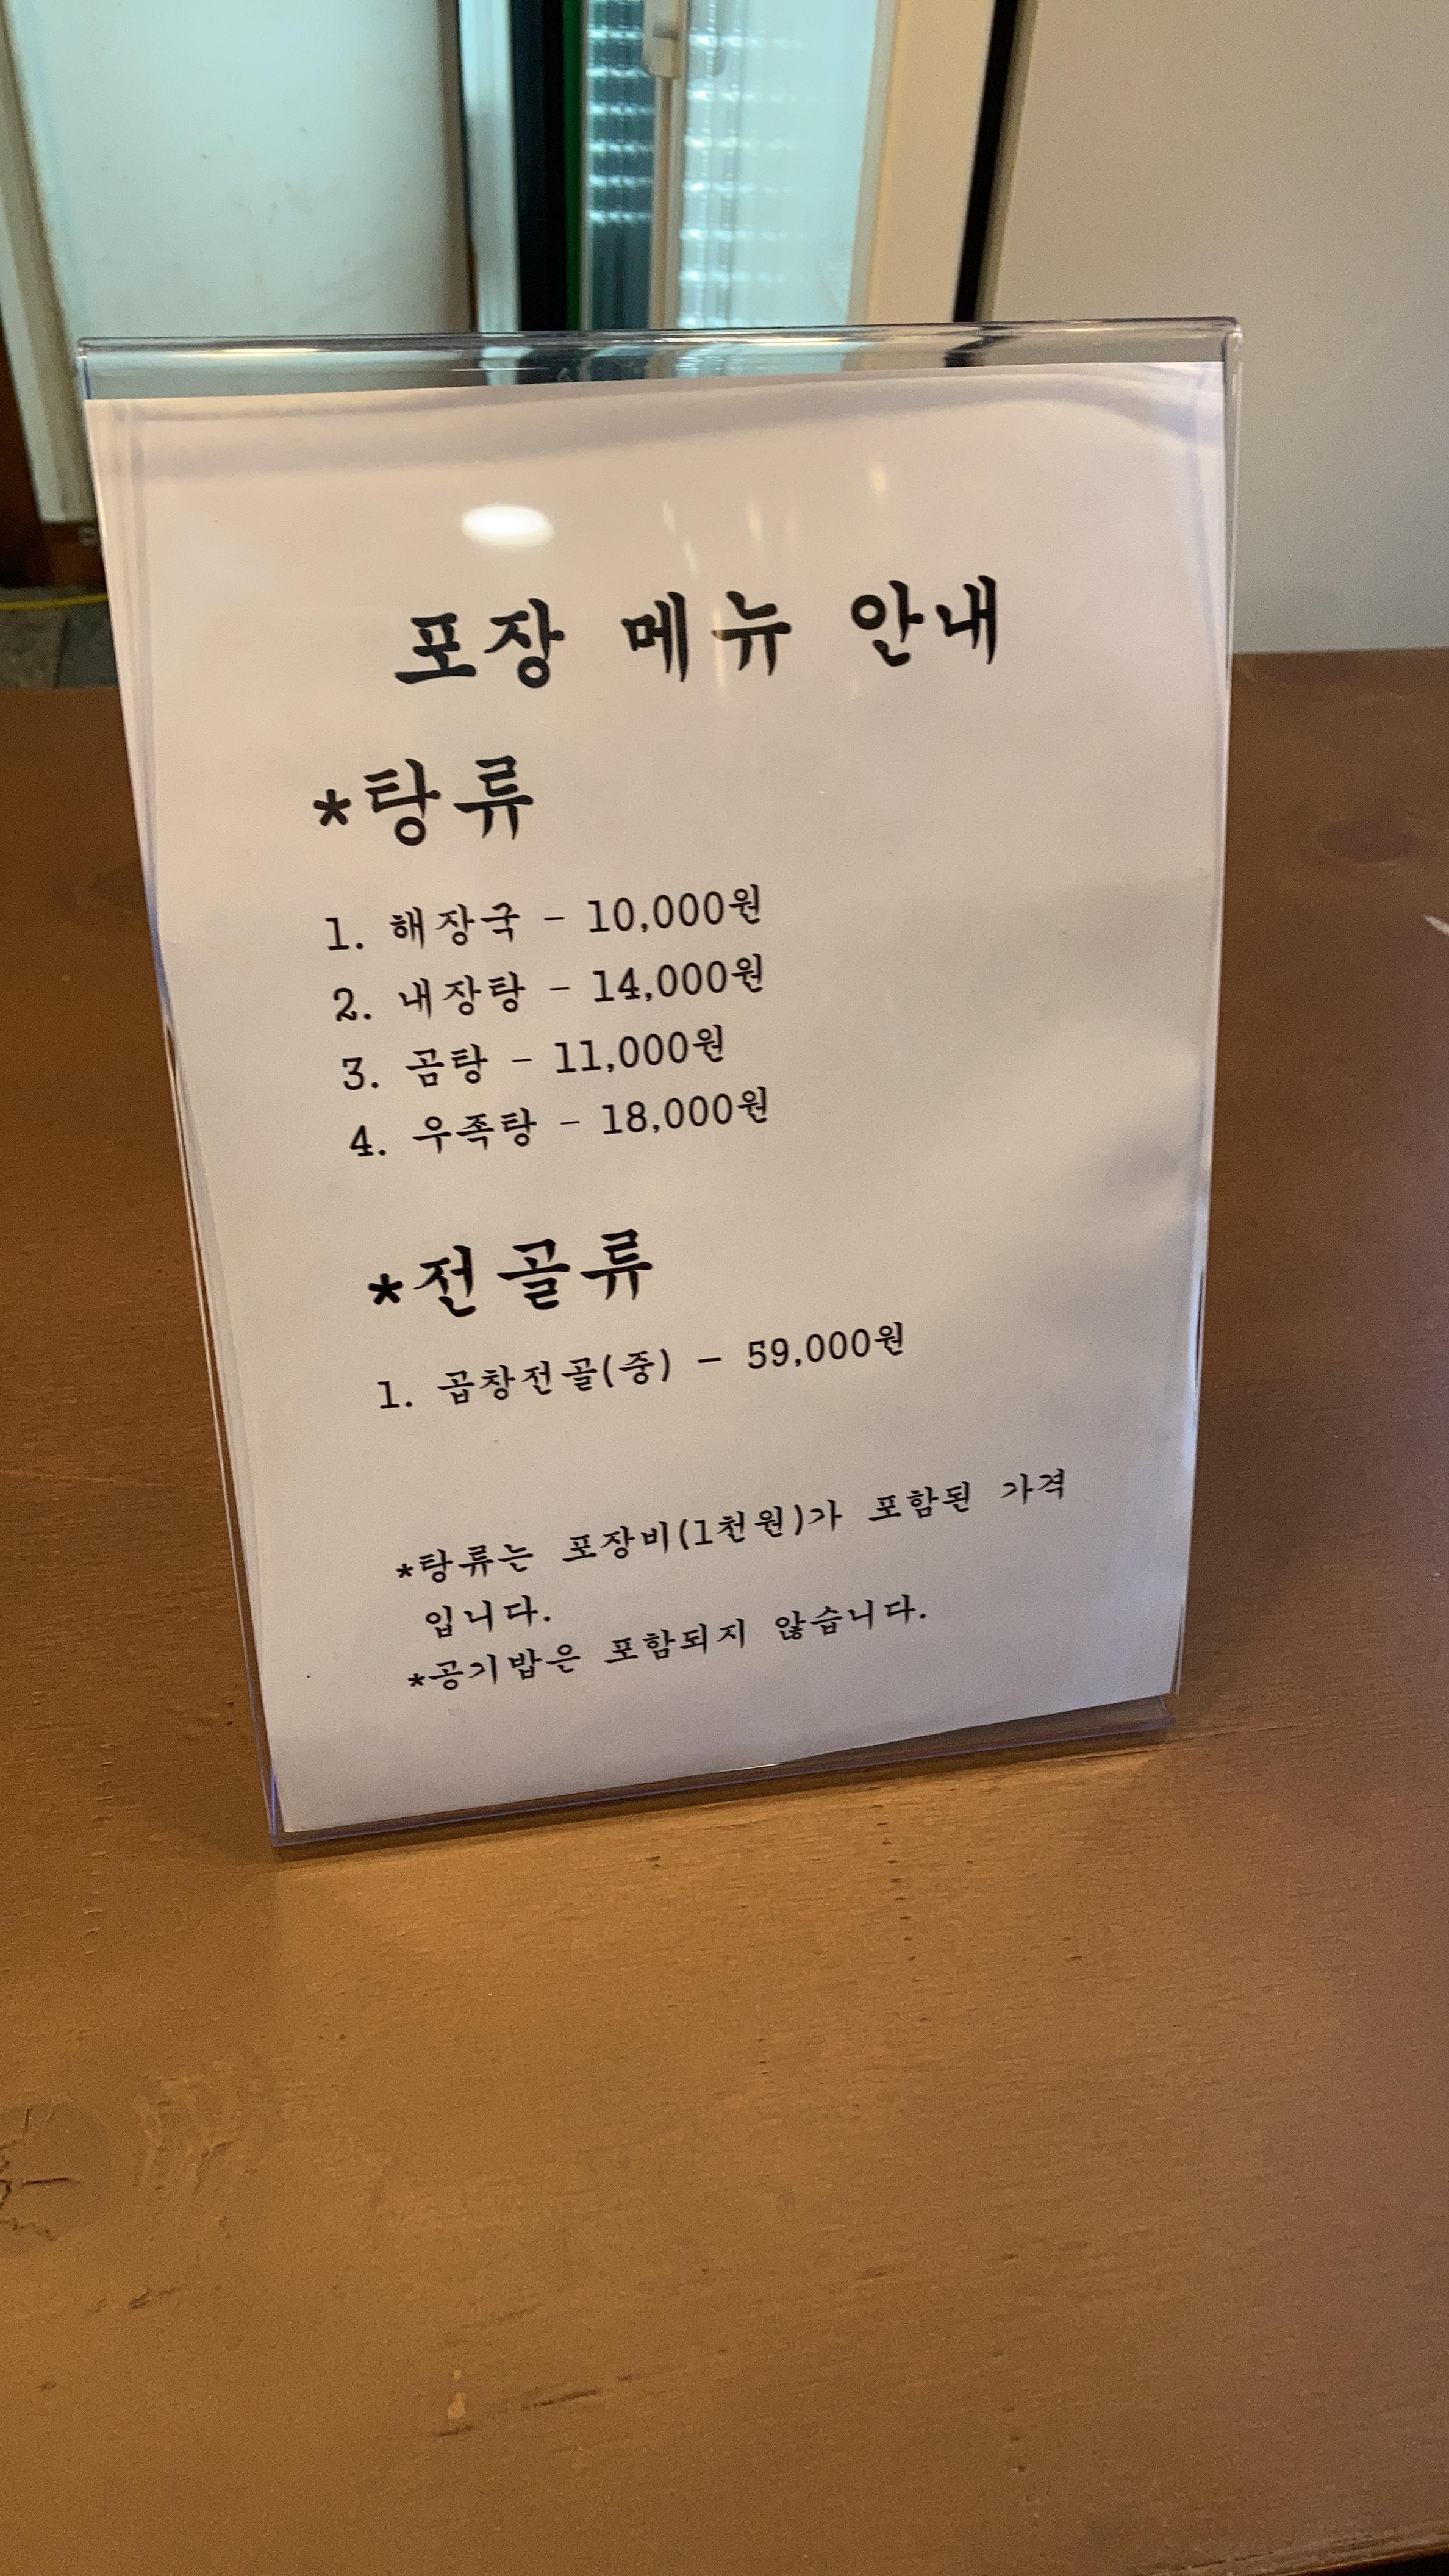 포장 메뉴 안내
*탕류
1. 해장국 - 10,000원
2. 내장탕 - 14,000원
3. 곰탕 - 11,000원
4. 우족탕 - 18,000원
*전골류
1. 곱창전골(중) - 59,000원
*탕류는 포장비(1천원)가 포함된 가격
입니다.
*공기밥은 포함되지 않습니다.